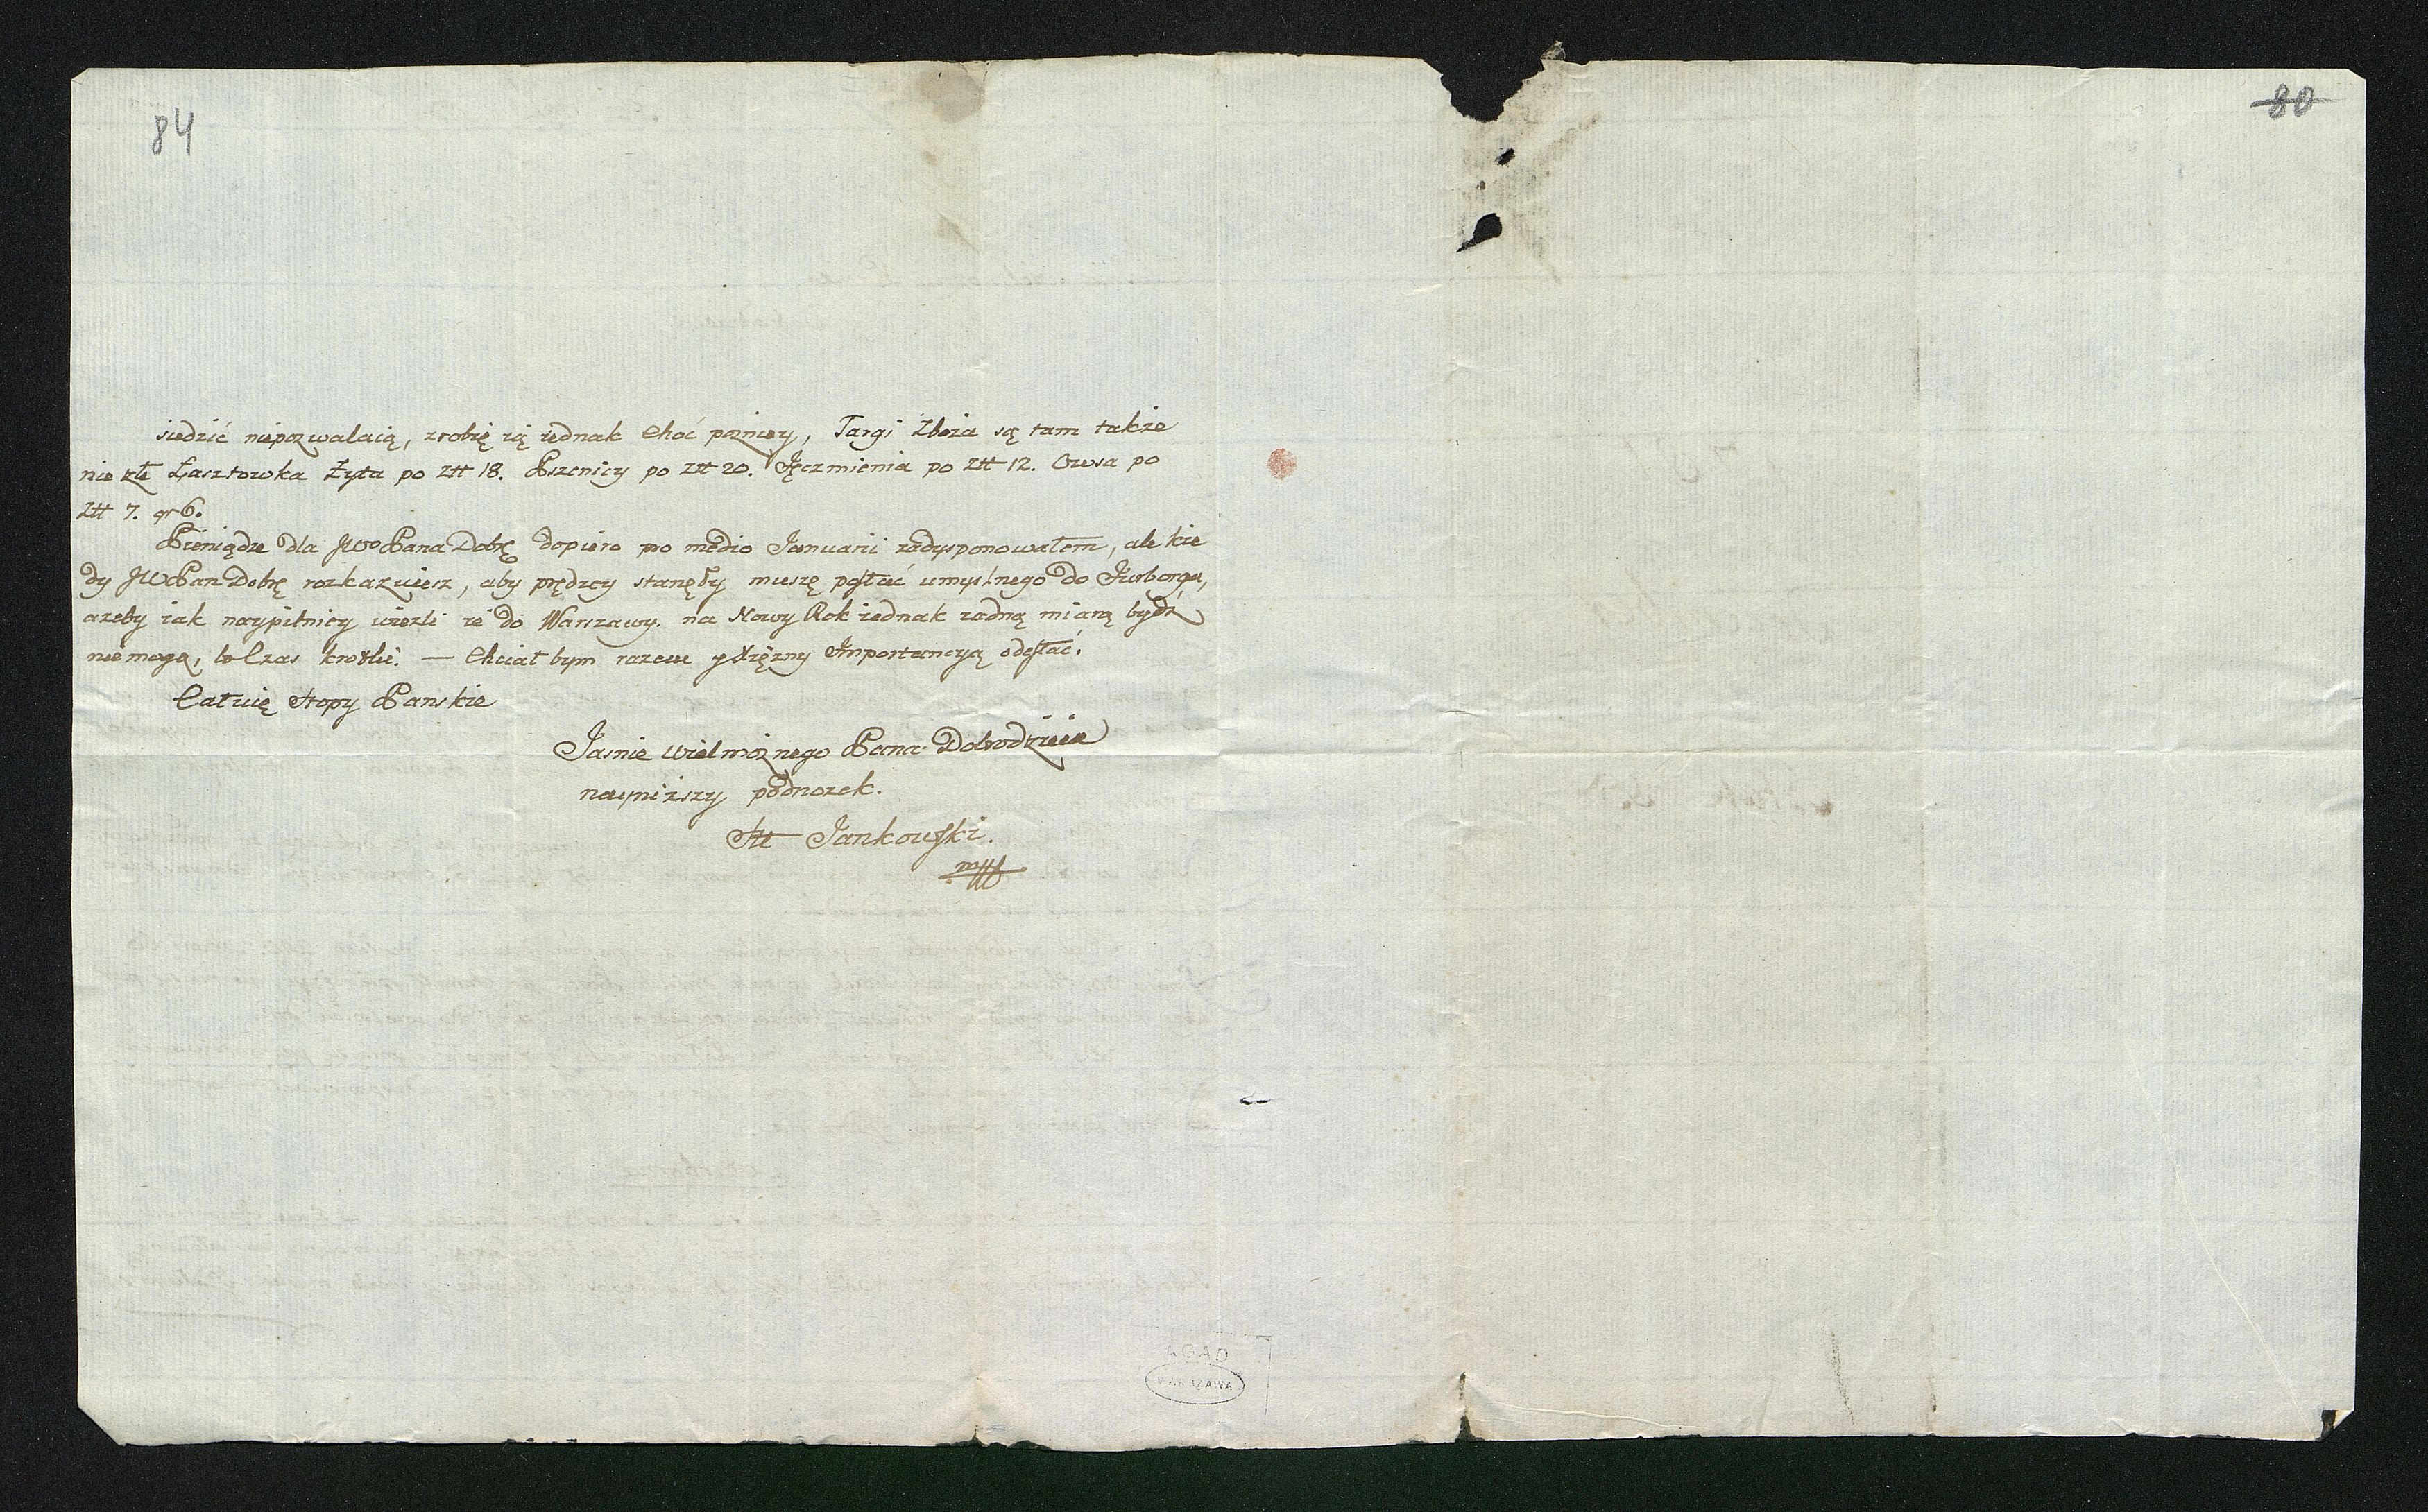 84
80
siedzić niepozwalaią, zrobię ią iednak choć pozniey, Targi Zboża są tam także
nie złe Łasztowka Żyta po Ztt 18. Pszenicy po Ztt 20. Jęczmienia po Ztt 12. Owsa po
Ztt 7. gr 6.
Pieniądze dla JWo Pana Dobrę dopiero pro medio Januarii zadysponowałem, ale kie
dy JWPan Dobrę rozkazuiesz, aby prędzey stanęły muszę posłać umyslnego do Jurborga,
azeby iak naypilniey wiezli ie do Warszawy. na Nowy Rok iednak zadną miarą bydź
niemogą, bo Czas krotki. — Chciał bym razem y Xiężny Importancyą odesłać.
Całuię stopy Panskie
Jasnie Wielmożnego Pana Dobrodzieia
nayniższy podnozek.
Jankowski.
mpp
AGAD
WARSZAWA